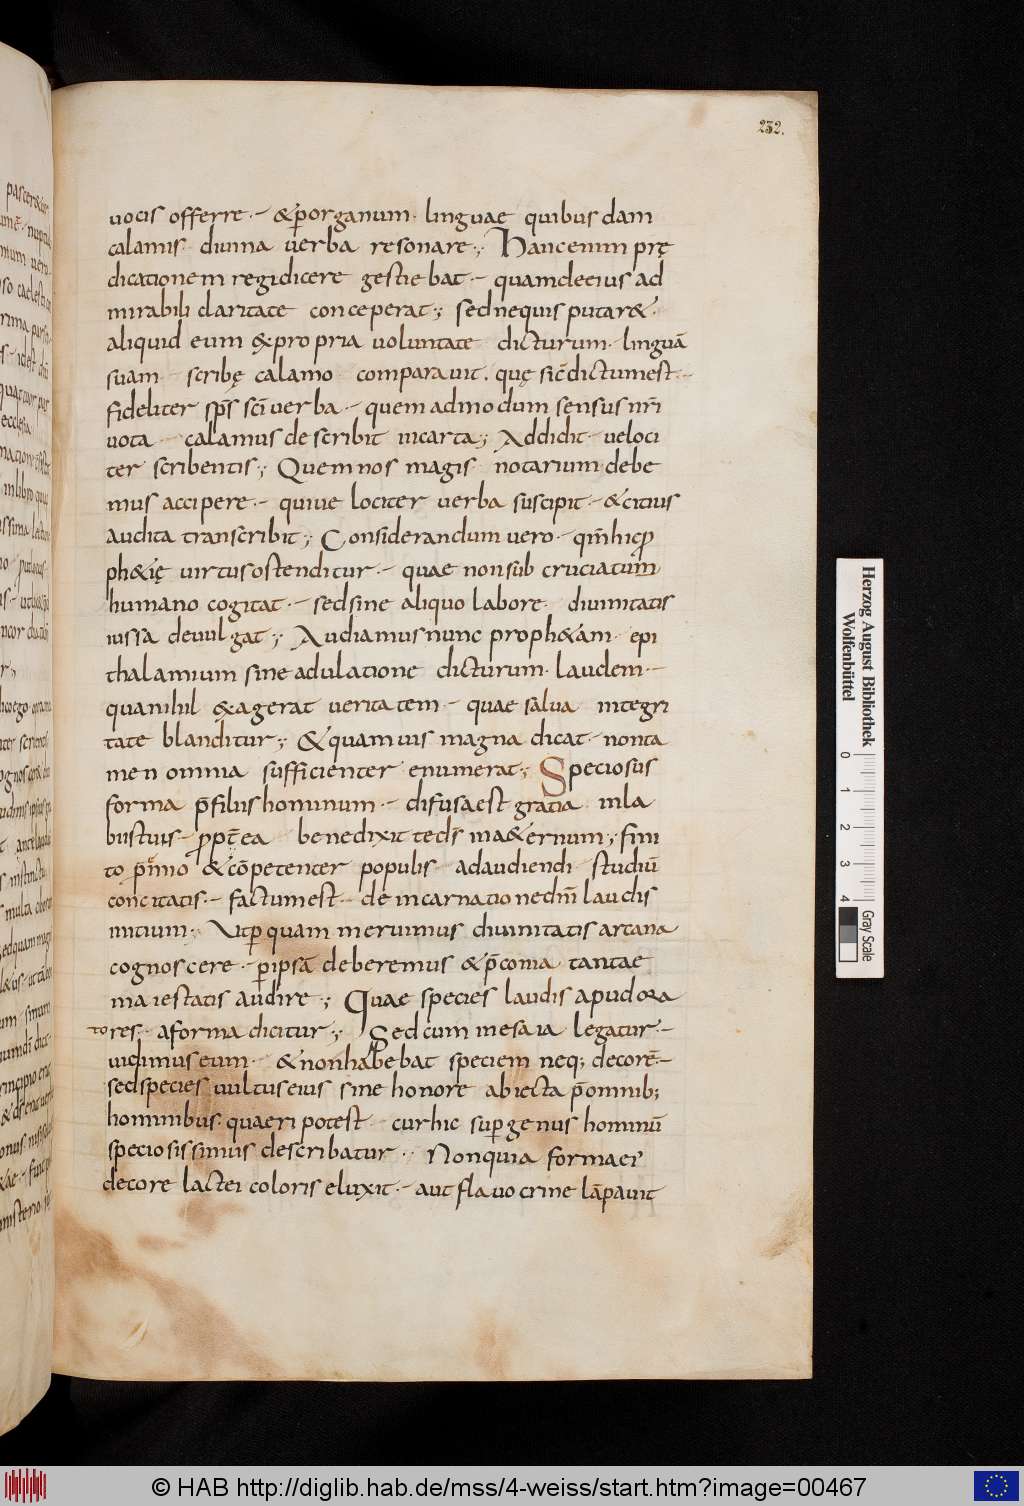 232.
uocis offerre·- &ꝑorganum· linguae quibusdam
calamis· diuina uerba resonare·; Hancenim prę
dicationem regidicere gestiebat·- quamdeeius ad
mirabili claritate conceperat·; sednequis putar&·
aliquid eum &propria uoluntate dicturum· linguā
suam· scribę calamo comparauit. quę sic̄dictumest·-
fideliter sp̄s sc̄i uerba·- quemadmodum sensus nr̄i
uota calamus describit incarta·; Addidit· ueloci
ter scribentis·; Quem nos magis notarium debe
mus accipere·- quiue lociter uerba suscipit·- &citius
audita transcribit·; Considerandum uero· qm̄hicꝓ
ph&ię uirtusostenditur·- quae nonsub cruciatum
humano cogitat·- sedsine aliquo labore· diuinitatis
iussa deuulgat·; Audiamusnunc proph&am· epi
thalamium sine adulatione dicturum· laudem·-
quanihil exagerat ueritatem·- quae salua integri
tate blanditur·; &quamuis magna dicat· nonta
men omnia sufficienter enumerat·; Speciosus
forma p̄filiis hominum·- difusaest gratia inla
biistuis· ꝓpt̄ea benedixit teds̄ ina&ernum·; fini
to p̄ mio &cōpetenter populis· adaudiendi· studiū
concitatis·- factumest· de incarnationedn̄i laudis
initium·; Utꝑquam meruimus diuinitatis arcana
cognoscere· ꝑipsā deberemus &p̄conia tantae
maiestatis audire·; Quae species laudis apud ora
tores· aforma dicitur·; Sed cum inesaia legatur·-
uidimus eum· &nonhabebat speciem neq; decorē·-
sedspecies uultuseius sine honore abiecta p̄omnib;
hominibus· quaeri potest· cur hic suꝑ genus hominū
speciosissimus describatur· Nonquia formaei
decore lactei coloris eluxit·- aut flauo crine lāpauit
Herzog August Bibliothek
Wolfenbüttel
0 1 2 3 4
Gray Scale
© HAB http://diglib.hab.de/mss/4-weiss/start.htm?image=00467